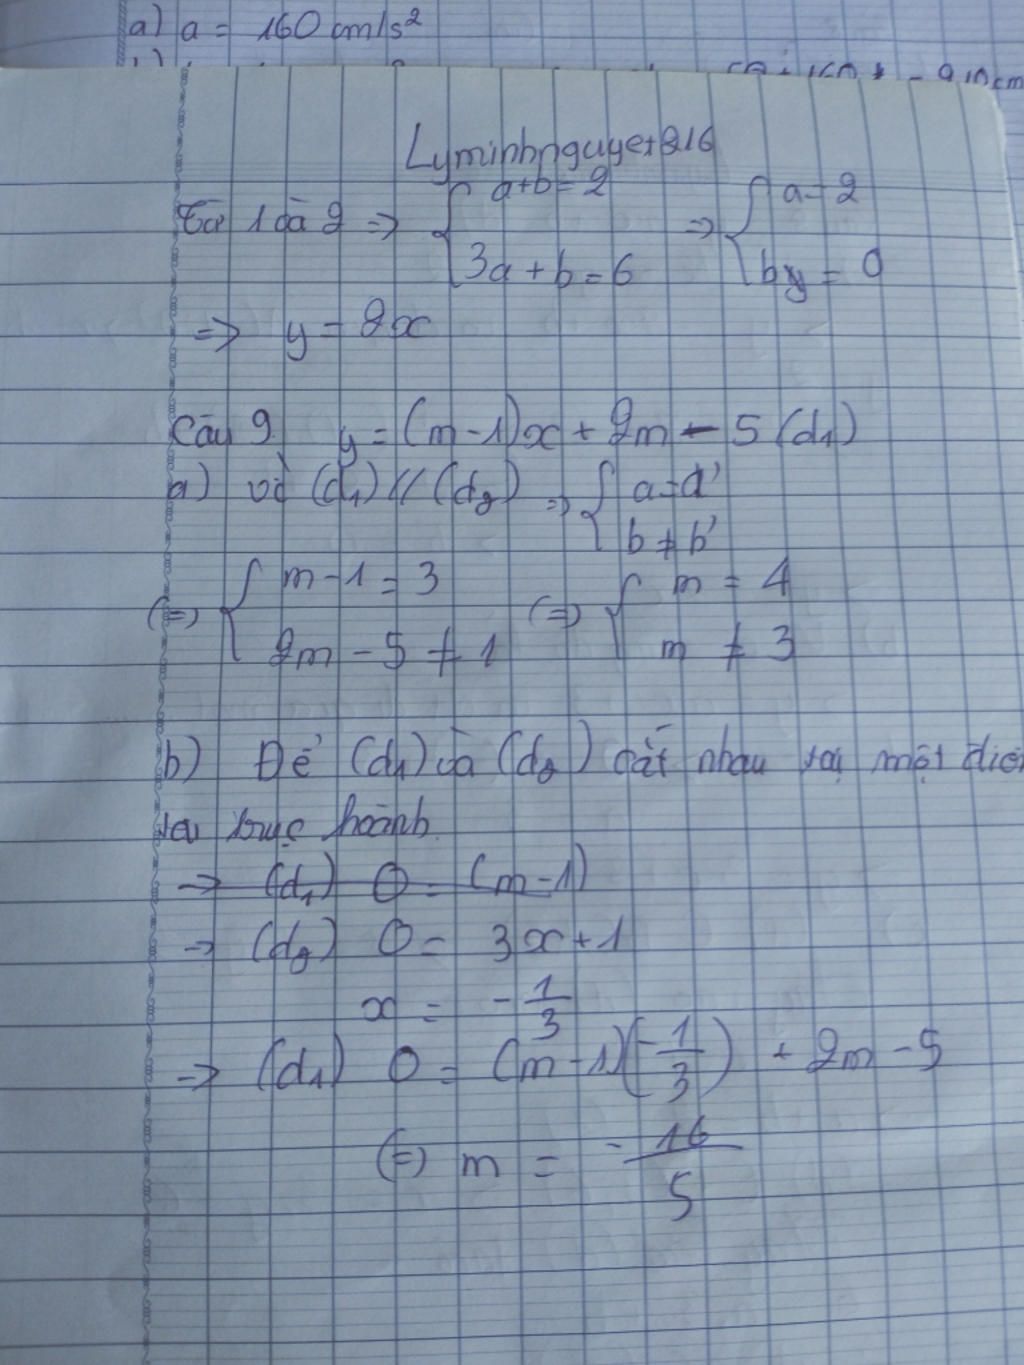 a) a = 160 cm/s²
Lyminhnguyet216
Từ 1 và 2 => { a+b = 2 => { a = 2
3a + b = 6 by = 0
=> y = 2x
Câu 2 y = (m-1)x + 2m - 5 (d1)
a) vì (d1) // (d2) => { a = a'
b ≠ b'
(=) { m - 1 = 3 (=) { m = 4
2m - 5 ≠ 1 m ≠ 3
b) Để (d1) và (d2) cắt nhau tại một điể
trục hoành
-> (d1) 0 = (m-1)
-> (d2) 0 = 3x + 1
x = -1/3
-> (d1) 0 = (m-1)(-1/3) + 2m - 5
(=) m = -16/5